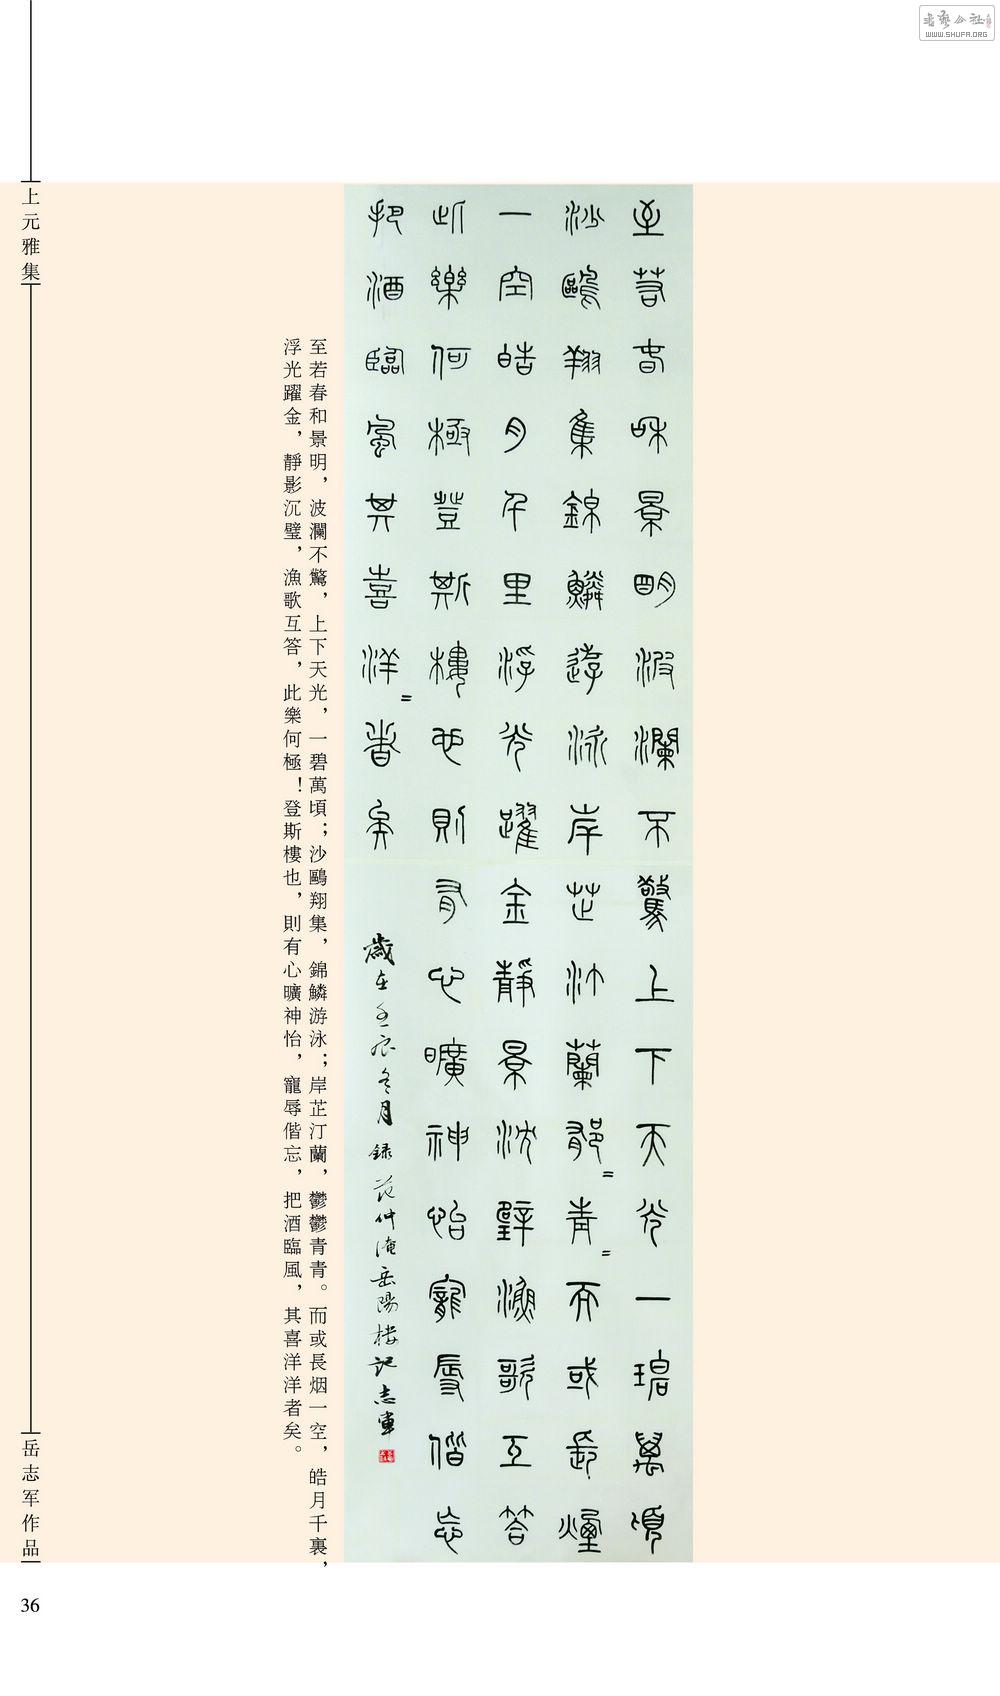 WWW.SHUFA.ORG
至若春和景明波瀾不驚上下天光一碧萬頃
沙鷗翔集錦鱗游泳岸芷汀蘭郁=青=而或長煙
一空皓月千里浮光躍金靜景沈璧漁歌互答
此樂何極登斯樓也則有心曠神怡寵辱偕忘
把酒臨風其喜洋=者矣
歲在壬辰冬月錄范仲淹岳陽楼記志軍
至若春和景明，波瀾不驚，上下天光，一碧萬頃；沙鷗翔集，錦鱗游泳；岸芷汀蘭，鬱鬱青青。而或長烟一空，皓月千裏，
浮光躍金，靜影沉璧，漁歌互答，此樂何極！登斯樓也，則有心曠神怡，寵辱偕忘，把酒臨風，其喜洋洋者矣。
上元雅集
岳志军作品
36